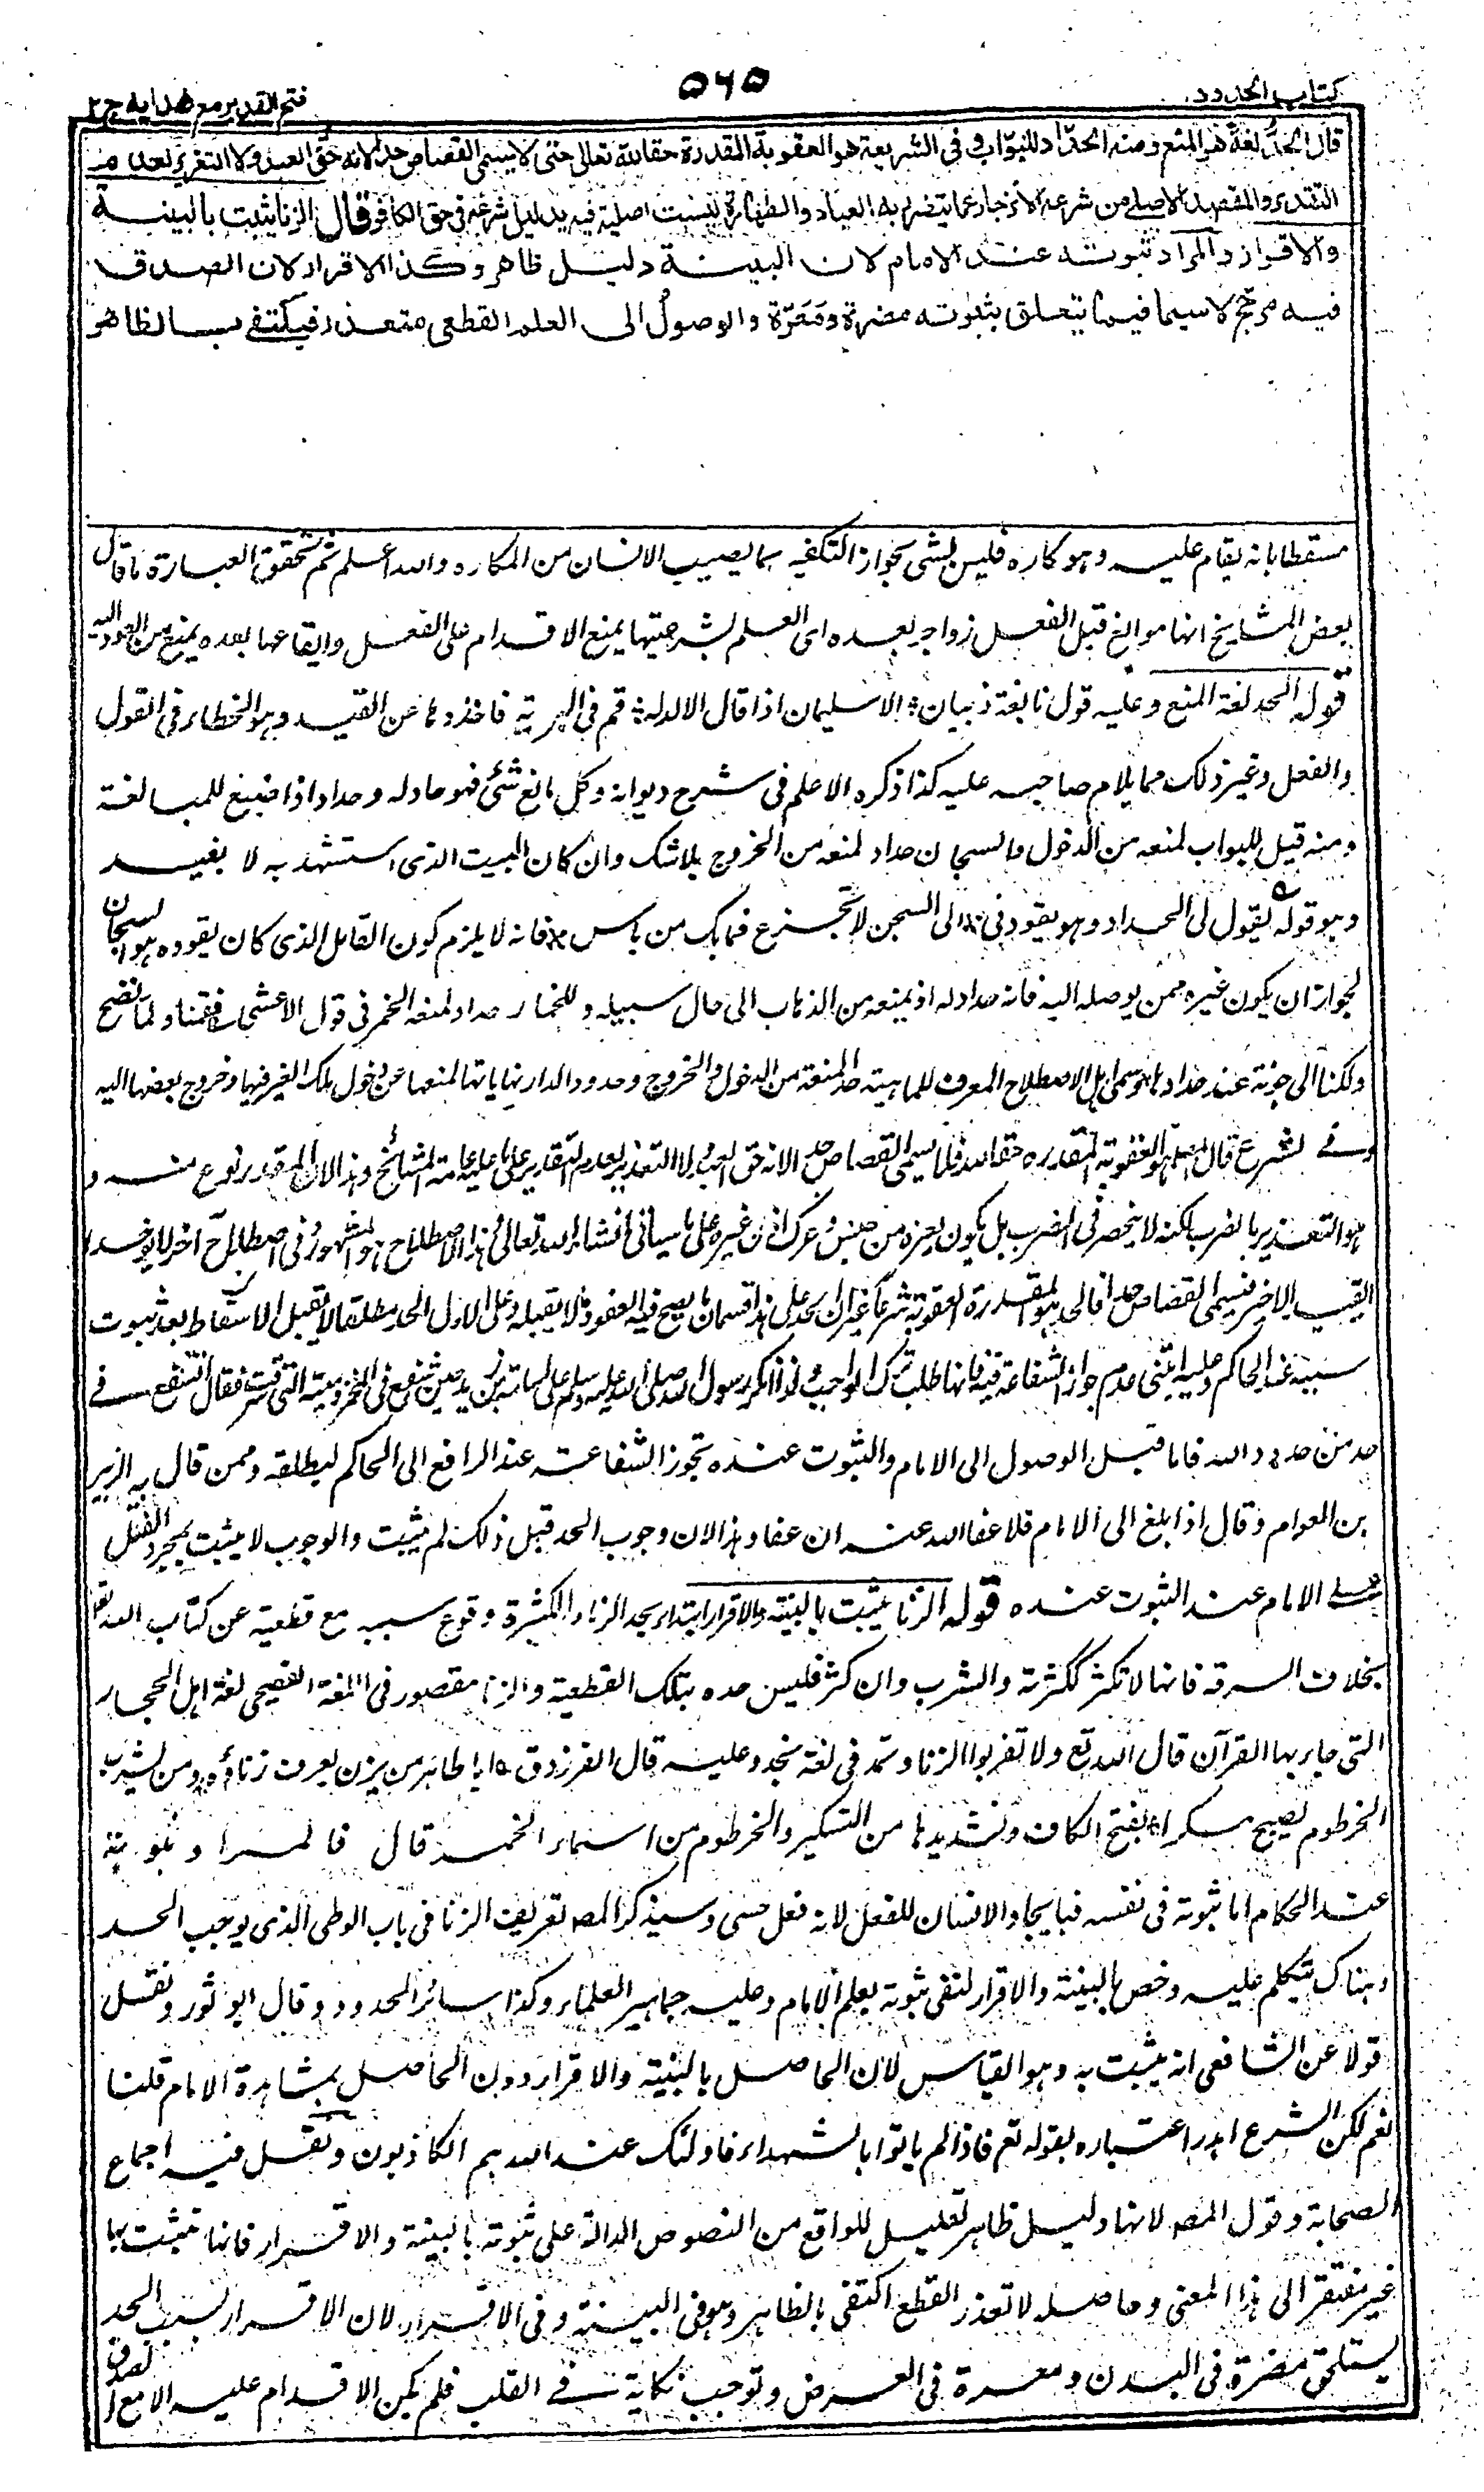 كتاب الحدود
٥٦٥
فتح القدير مع هدايه ج ٢
قال الحد لغة هو المنع ومنه الحداد للبواب وفي الشريعة هو العقوبة المقدرة حقا لله تعالى حتى لا يسمى القصاص حدا لانه حق العبد ولا التعزير لعدم
التقدير والمقصد الاصلي من شرعه الانزجار عما يتضرر به العباد والطهارة ليست اصلية فيه بدليل شرعه في حق الكافر قال الزنا يثبت بالبينة
والاقرار والمراد ثبوته عند الامام لان البينة دليل ظاهر وكذا الاقرار لان الصدق
فيه مرجح لا سيما فيما يتعلق بثبوته مضرة ومعرة والوصول الى العلم القطعي متعذر فيكتفى بالظاهر
مسقطا بانه يقام عليه وهو كاره فليس بشئ لجواز التكفير بما يصيب الانسان من المكاره والله اعلم ثم تحقق العبارة ما قال
بعض المشايخ انها موانع قبل الفعل زواجر بعده اى العلم بشرعيتها يمنع الاقدام على الفعل وايقاعها بعده يمنع من العود اليه
قوله الحد لغة المنع وعليه قول نابغة ذبيان الا سليمان اذ قال الاله له قم في البرية فاحددها عن الفند وهو الخطاء في القول
والفعل وغير ذلك مما يلام صاحبه عليه كذا ذكره الاعلم في شرح ديوانه وكل مانع شئ فهو حاد له وحداد اذا صيغ للمبالغة
ومنه قيل للبواب لمنعه من الدخول والسجان حداد لمنعه من الخروج بلا شك وان كان البيت الذى استشهد به لا يفيد
وهو قوله يقول لى الحداد وهو يقودنى الى السجن لا تجزع فما بك من باس فانه لا يلزم كون القائل الذى كان يقوده هو السجان
لجواز ان يكون غيره ممن يوصله اليه فانه حداد له اذ يمنعه من الذهاب الى حال سبيله وللخمار حداد لمنعه الخمر في قول الاعشى فقمنا ولما يصح
ديكنا الى جونة عند حدادها وسمى اهل الاصطلاح المعرف للماهية حدا لمنعه من الدخول والخروج وحدود الدار نهاياتها لمنعها عن دخول ملك الغير فيها وخروج بعضها اليه
وفى الشرع قال المصـ هو العقوبة المقدرة حقا لله فلا يسمى القصاص حدا لانه حق العبد ولا التعزير لعدم التقدير على ما عليه عامة المشائخ وهذا لان المقدر نوع منه و
هو التعزير بالضرب لكنه لا ينحصر في الضرب بل يكون بغيره من حبس وعرك اذن وغيره على ما سيأتى انشاء الله تعالى وهذا الاصطلاح هو المشهور وفى اصطلاح آخر لا يوخذ
القيد الاخير فيسمى القصاص حدا فالحد هو العقوبة المقدرة شرعا غير ان الحد على هذا قسمان ما يصح فيه العفو وما لا يقبله وعلى الاول الحد مطلقا لا يقبل الاسقاط بعد ثبوت
سببه عند الحاكم وعليه ابتنى عدم جواز الشفاعة فيه فانها طلب ترك الواجب ولذا انكر رسول الله صلى الله عليه وسلم على اسامة بن زيد حين شفع في المخزومية التى سرقت فقال اتشفع فى
حد من حدود الله فاما قبل الوصول الى الامام والثبوت عنده تجوز الشفاعة عند الرافع الى الحاكم ليطلقه وممن قال به الزبير
بن العوام وقال اذا بلغ الى الامام فلا عفا الله عنه ان عفا وهذا لان وجوب الحد قبل ذلك لم يثبت والوجوب لا يثبت بمجرد الفعل
على الامام عند الثبوت عنده قوله الزنا يثبت بالبينة والاقرار ابتداء بحد الزنا لكثرة وقوع سببه مع قطعية عن كتاب الله تع
بخلاف السرقة فانها لا تكثر ككثرته والشرب وان كثر فليس حده بتلك القطعية والزنا مقصور في اللغة الفصحى لغة اهل الحجاز
التى جاء بها القرآن قال الله تع ولا تقربوا الزنا وتمد فى لغة نجد وعليه قال الفرزدق ابا طاهر من يزن يعرف زناؤه ومن يشرب
الخرطوم يصبح مسكرا بفتح الكاف وتشديدها من التسكير والخرطوم من اسماء الخمر قال والمراد ثبوته
عند الحكام اما ثبوته فى نفسه فبايجاد الانسان للفعل لانه فعل حسى وسيذكر المصـ تعريف الزنا فى باب الوطى الذى يوجب الحد
وهناك يتكلم عليه وخص بالبينة والاقرار لنفى ثبوته بعلم الامام وعليه جماهير العلماء وكذا سائر الحدود وقال ابو ثور ونقل
قولا عن الشافعى انه يثبت به وهو القياس لان الحاصل بالبينة والاقرار دون الحاصل بمشاهدة الامام قلنا
نعم لكن الشرع اهدر اعتباره بقوله تع فاذ لم ياتوا بالشهداء فاولئك عند الله هم الكاذبون ونقل فيه اجماع
الصحابة وقول المصـ لانها دليل ظاهر تعليل للواقع من النصوص الدالة على ثبوته بالبينة والاقرار فانها تثبت بها
غير مفتقر الى هذا المعنى وحاصله لما تعذر القطع اكتفى بالظاهر وهو فى البينة وفى الاقرار لان الاقرار بسبب الحد
يستلحق مضرة فى البدن ومعرة فى العرض وتوجب نكاية فى القلب فلم يكن الاقدام عليه الا مع الصدق